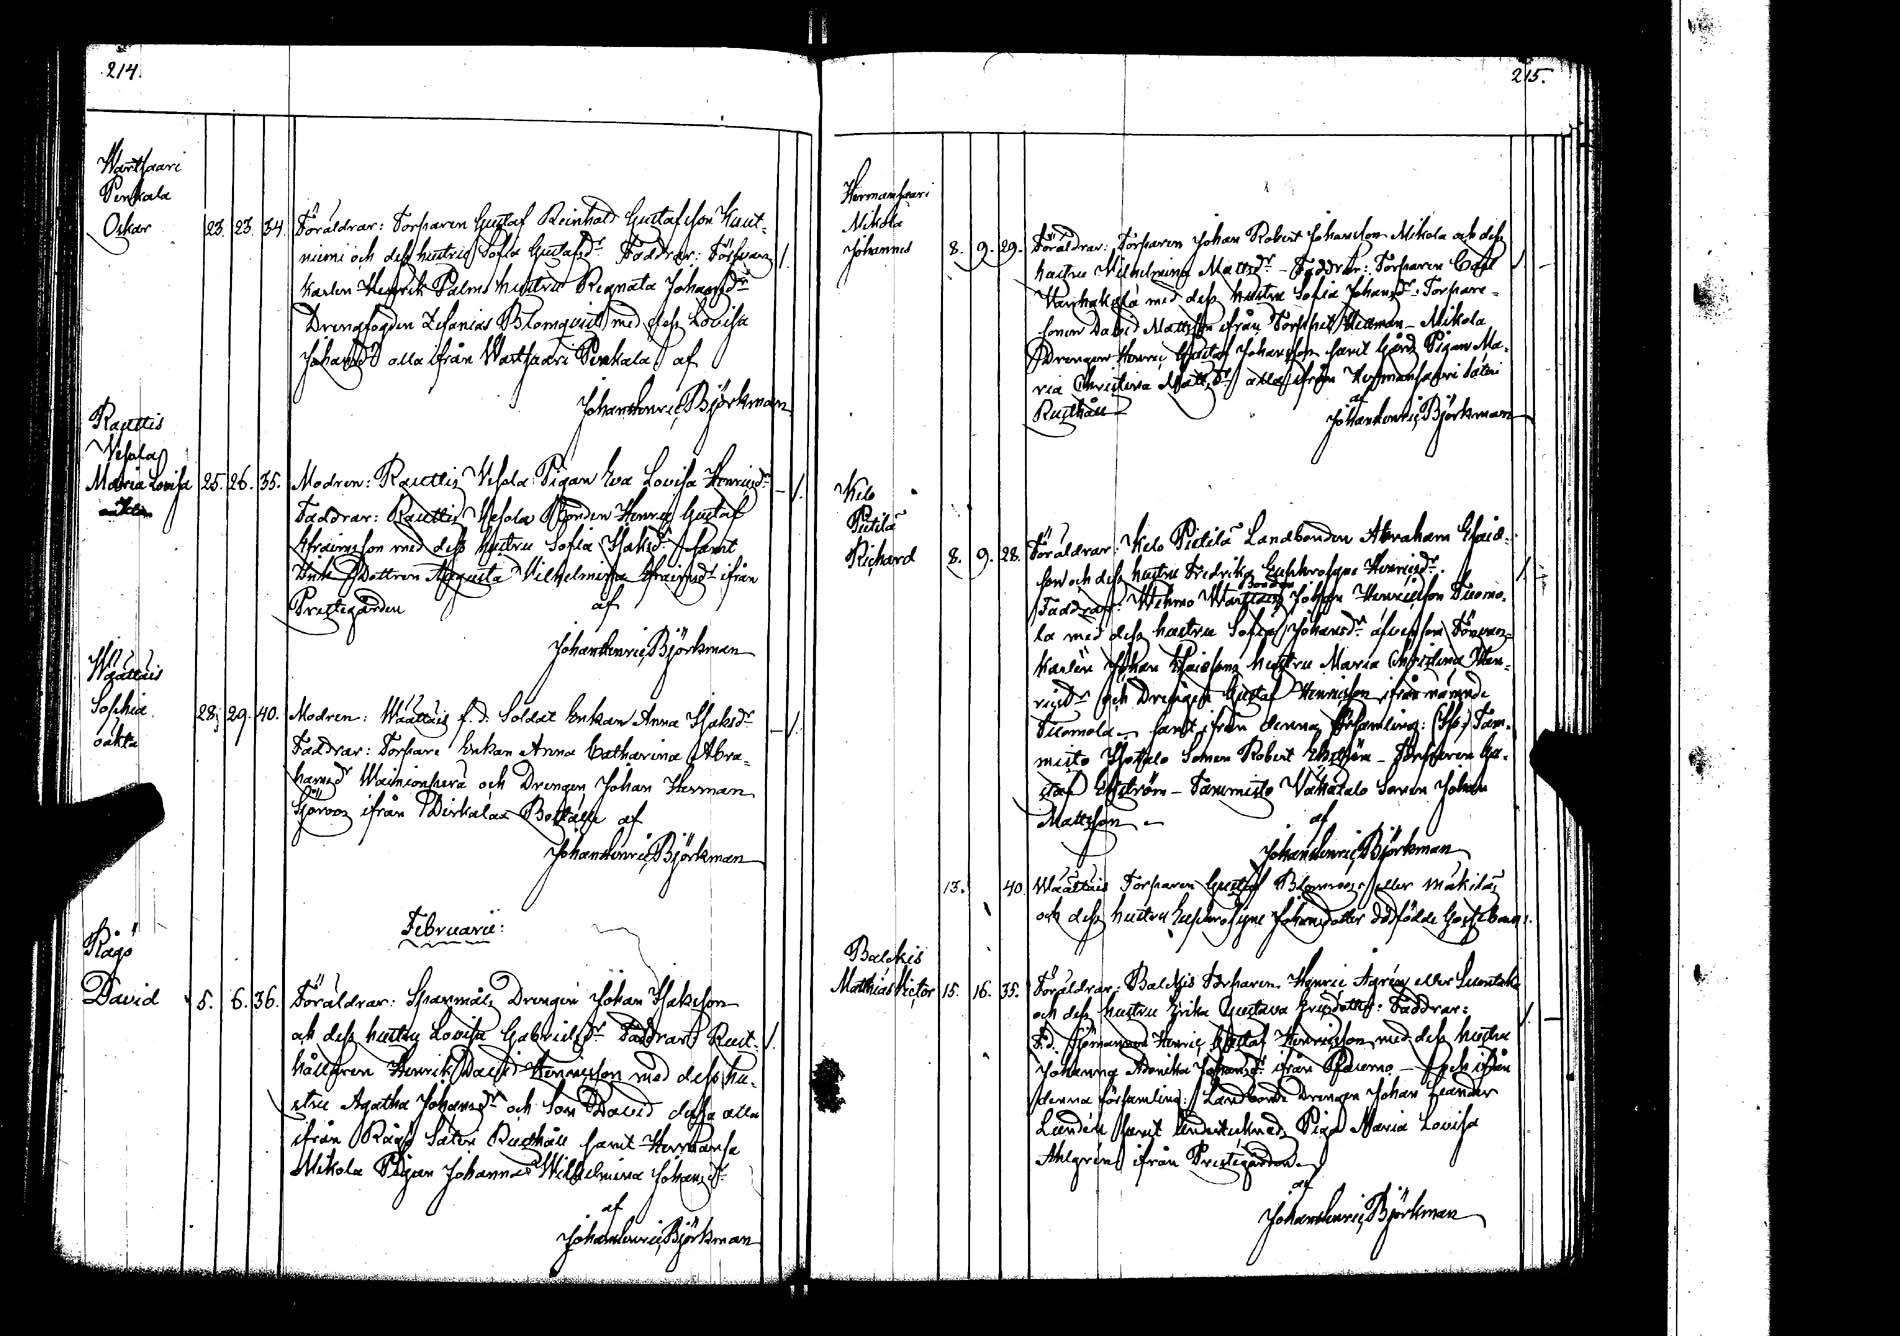 214.
Wartsaari
Penkala
Oskar 23. 23. 34. Föräldrar: Torparen Gustaf Reinhold Gustafsson Kuut-
niemi och dess hustru Sofia Gustafsdr. Faddrar: Försvars
karlen Henrik Palms hustru Regnata Johansdr
Drengfogden Zefanias Blomqvist med dess Lovisa
Johansdr alla ifrån Wartsaari Penkala af
Johan Henric Björkman
Rauttis
Vesola
Maria Lovisa 25. 26. 35. Modren: Rauttis Vesola Pigan Eva Lovisa Henricsdr
Faddrar: Rauttis Vesola Bonden Henric Gustaf
Efraimsson med dess hustru Sofia Isaksdr samt
Enk Dottren Augusta Vilhelmina Efraimsdr ifrån
Prestegården af
Johan Henric Björkman
Wäättäis
Sophia 28. 29. 40. Modren: Wäättäis f. d. Soldat Enkan Anna Isaksdr
oäkta
Faddrar: Torpare Enkan Anna Catharina Abra-
hamsdr Wainionperä och Drengen Johan Herman
Sjöroos ifrån Pirkala Bolställ af
Johan Henric Björkman
Februarii:
Rågö
David 5. 6. 36. Föräldrar: Spanmåls Drengen Johan Isaksson
och dess hustru Lovisa Gabrielsdr Faddrar: Rust-
hållaren Henrik David Henricsson med dess hu-
stru Agatha Johansdr och Son David dessa alla
ifrån Rågö Säteri Rusthåll samt Hermansa
Mikola Pigan Johanna Wilhelmina Johansdr
af
Johan Henric Björkman
215.
Hermansaari
Mikola
Johannes 8. 9. 29. Föräldrar: Torparen Johan Robert Johansson Mikola och dess
hustru Vilhelmina Mattsdr – Faddrar: Torparen Carl
med dess hustru Sofia Johansdr. Torpare-
sonen David Mattsson ifrån Torphit – Mikola
Drengen Henric Gustaf Johansson samt Gårds Pigan Ma-
ria Christina Mattsdr alla ifrån Hermansaari Säteri
Rusthåll af
Johan Henric Björkman
Kelo
Pietilä
Richard 8. 9. 28. Föräldrar: Kelo Pietilä Landbonden Abraham Esais-
son och dess hustru Fredrika Euphrosyne Henricsdr.
Faddrar: Wehmo Bonden Johan Henricsson Tuomo-
la med dess hustru Sofia Johansdr äfvensom Försvars-
karlen Johan Esaissons hustru Maria Christina Hen-
ricsdr och Drengen Gustaf Henricsson ifrån nämnde
Tuomola – samt ifrån denna församling: Tam-
misto Isotalo Sonen Robert Ekström – Torparen Gu-
staf Ekström – Tammisto Vähätalo Sonen Johan
Mattsson – af
Johan Henric Björkman
13. 40. Wäättäis Torparen Gustaf Blomroos eller Mäkilä
och dess hustru Euphrosyne Johansdotter dödfödde Gossebarn
Balckis
Mathias Victor 15. 16. 35. Föräldrar: Balckis Torparen Henric Agrén eller
och dess hustru Erika Gustava Ericsdotter: Faddrar:
F. d. Sjömannen Henric Gustaf Henricsson med dess hustru
Johanna Adonika Johansdr ifrån – och ifrån
denna församling: Landbonde Drengen Johan Leander
Lundén samt Pigan Maria Lovisa
Ahlgrén ifrån Prestegården
af
Johan Henric Björkman